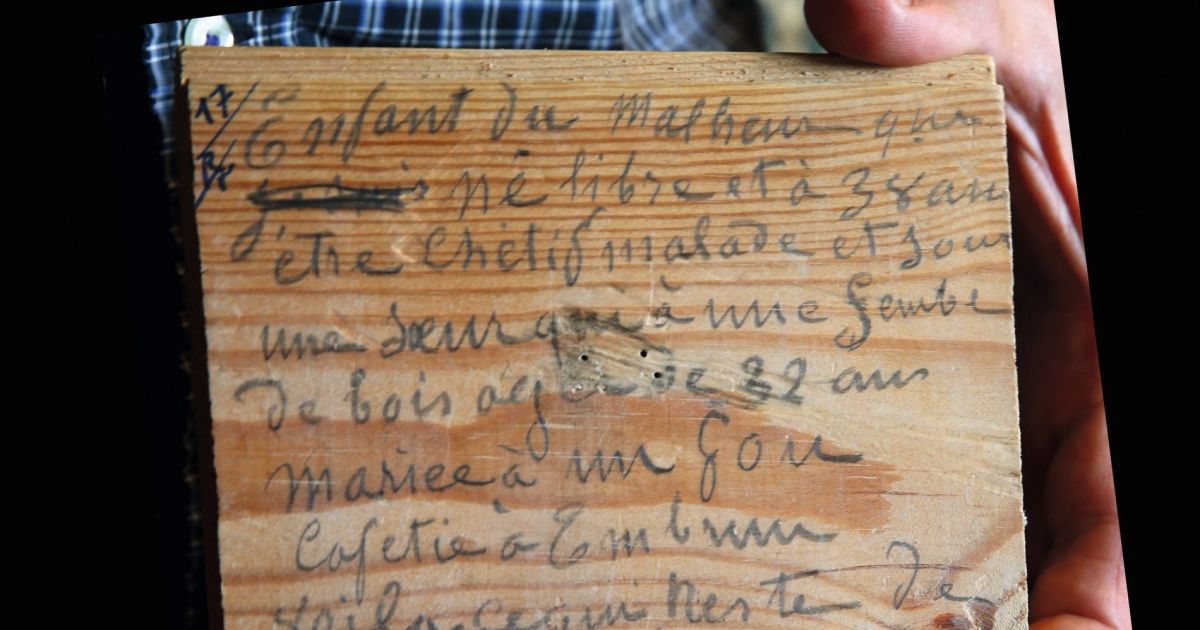 17/
Enfant du Malheur que
né libre et à 38 an
être Chétif malade et sour
une sœur qui à une gembe
de bois agée de 32 ans
mariee à un fou
Cafetie à Embrun
voila cequi Reste de